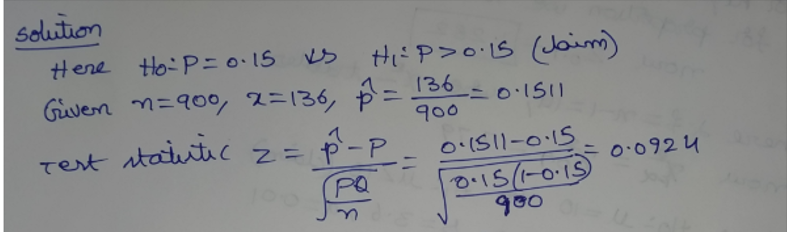 solution
Here H₀: P = 0.15 vs H₁: P > 0.15 (claim)
Given n=900, x=136, p̂ = 136/900 = 0.1511
Test statistic z = (p̂ - P)/√(PQ/n) = (0.1511-0.15)/√(0.15(1-0.15)/900) = 0.0924